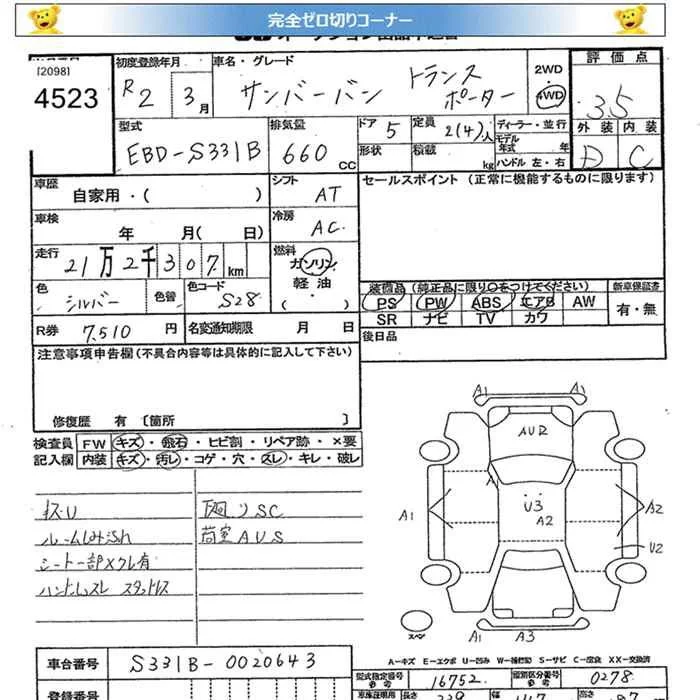 完全ゼロ切りコーナー
[2098]
4523
初度登録年月
R2 3月
車名・グレード
サンバーバン トランスポーター
2WD
・
4WD
評価点
3.5
外装 内装
D C
型式
EBD-S331B
排気量
660 cc
ドア 5
形状
定員 2(4)人
積載 kg
ディーラー・並行
モデル年式 年
ハンドル 左・右
車歴
自家用・( )
シフト
AT
セールスポイント (正常に機能するものに限ります)
車検
年 月( 日)
冷房
AC
走行
21万2千307km
燃料
ガソリン
軽油
( ・ )
色
シルバー
色替
色コード
S28
装備品 (純正品に限り○をつけてください)
PS PW ABS エアB AW
SR ナビ TV カワ
新車保証書
有・無
R券 7,510 円
名変通知期限 月 日
後日品
注意事項申告欄(不具合内容等は具体的に記入して下さい)
修復歴 有 [箇所 ]
検査員
記入欄
FW キズ・飛石・ヒビ割・リペア跡・×要
内装 キズ・汚レ・コゲ・穴・スレ・キレ・破レ
キズU
ルームしみ
シート一部スレ有
ハンドルスレ
廻りSC
荷室AUS
A1
A1
AU2
A1
U3
A2
A1
A2
U2
スペア
A1
A3
A=キズ E=エクボ U=凹み W=補修跡 S=サビ C=腐食 XX=交換済
車台番号
S331B-0020643
型式指定番号
16752
類別区分番号
0278
登録番号